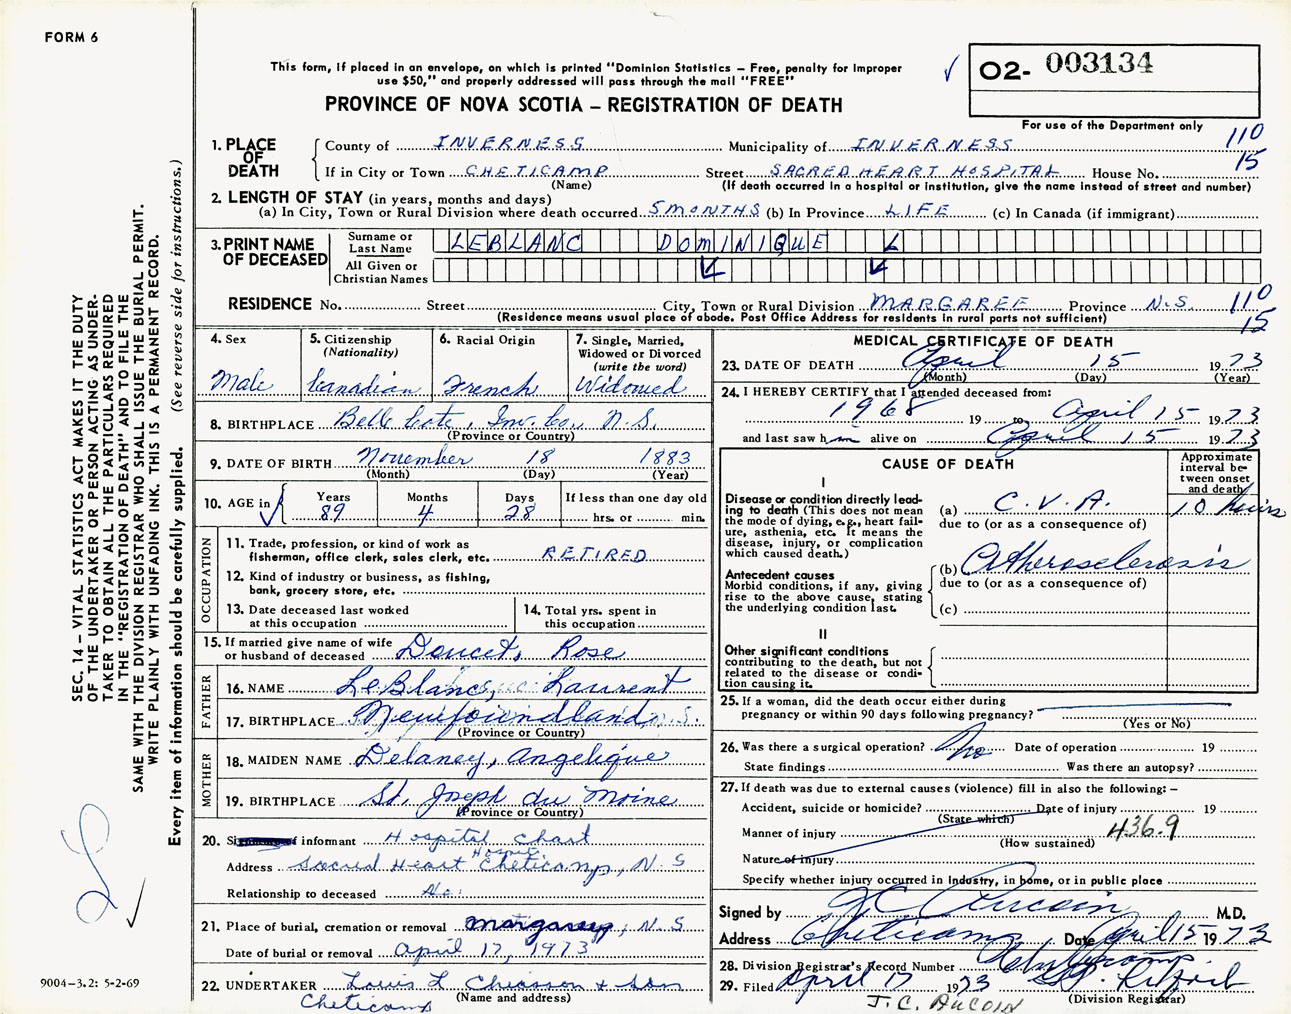 FORM 6
This form, if placed in an envelope, on which is printed "Dominion Statistics – Free, penalty for improper
use $50," and properly addressed will pass through the mail "FREE"
PROVINCE OF NOVA SCOTIA – REGISTRATION OF DEATH
✓ O2- 003134
For use of the Department only
1. PLACE OF DEATH
County of INVERNESS Municipality of INVERNESS 110
15
If in City or Town CHETICAMP Street SACRED HEART HOSPITAL House No.
(Name) (If death occurred in a hospital or institution, give the name instead of street and number)
2. LENGTH OF STAY (in years, months and days)
(a) In City, Town or Rural Division where death occurred 5 MONTHS (b) In Province LIFE (c) In Canada (if immigrant)
3. PRINT NAME OF DECEASED
Surname or Last Name LEBLANC DOMINIQUE L
All Given or Christian Names
RESIDENCE No. Street City, Town or Rural Division MARGAREE Province N.S. 110
15
(Residence means usual place of abode. Post Office Address for residents in rural parts not sufficient)
4. Sex Male
5. Citizenship (Nationality) Canadian
6. Racial Origin French
7. Single, Married, Widowed or Divorced (write the word) Widowed
8. BIRTHPLACE Belle Cote, Inv. Co., N.S.
(Province or Country)
9. DATE OF BIRTH November 18 1883
(Month) (Day) (Year)
10. AGE in Years 89 Months 4 Days 28 If less than one day old
hrs. or min.
OCCUPATION
11. Trade, profession, or kind of work as
fisherman, office clerk, sales clerk, etc. RETIRED
12. Kind of industry or business, as fishing,
bank, grocery store, etc.
13. Date deceased last worked
at this occupation
14. Total yrs. spent in
this occupation
15. If married give name of wife
or husband of deceased Doucet, Rose
FATHER
16. NAME LeBlanc, Laurent
17. BIRTHPLACE Newfoundland
(Province or Country)
MOTHER
18. MAIDEN NAME Delaney, Angelique
19. BIRTHPLACE St. Joseph du Moine
(Province or Country)
20. informant Hospital Chart
Address Sacred Heart Hospital Cheticamp, N.S
Relationship to deceased No.
21. Place of burial, cremation or removal Margaree, N.S
Date of burial or removal April 17, 1973
22. UNDERTAKER Louis L Chiasson + Son
(Name and address)
Cheticamp
MEDICAL CERTIFICATE OF DEATH
23. DATE OF DEATH April 15 1973
(Month) (Day) (Year)
24. I HEREBY CERTIFY that I attended deceased from:
1968 19 to April 15 1973
and last saw him alive on April 15 1973
CAUSE OF DEATH
Approximate interval between onset and death
I
Disease or condition directly leading to death (This does not mean the mode of dying, e.g., heart failure, asthenia, etc. It means the disease, injury, or complication which caused death.)
(a) C.V.A. 10 hours
due to (or as a consequence of)
Antecedent causes
Morbid conditions, if any, giving rise to the above cause, stating the underlying condition last.
(b) Atherosclerosis
due to (or as a consequence of)
(c)
II
Other significant conditions
contributing to the death, but not related to the disease or condition causing it.
25. If a woman, did the death occur either during
pregnancy or within 90 days following pregnancy?
(Yes or No)
26. Was there a surgical operation? No Date of operation 19
State findings Was there an autopsy?
27. If death was due to external causes (violence) fill in also the following: –
Accident, suicide or homicide? Date of injury 19
(State which)
Manner of injury 436.9
(How sustained)
Nature of injury
Specify whether injury occurred in industry, in home, or in public place
Signed by J C Aucoin M.D.
Address Cheticamp Date April 15 1973
28. Division Registrar's Record Number
29. Filed April 17 1973
(Division Registrar)
J.C. AUCOIN
SEC. 14 – VITAL STATISTICS ACT MAKES IT THE DUTY
OF THE UNDERTAKER OR PERSON ACTING AS UNDER-
TAKER TO OBTAIN ALL THE PARTICULARS REQUIRED
IN THE "REGISTRATION OF DEATH" AND TO FILE THE
SAME WITH THE DIVISION REGISTRAR WHO SHALL ISSUE THE BURIAL PERMIT.
WRITE PLAINLY WITH UNFADING INK. THIS IS A PERMANENT RECORD.
Every item of information should be carefully supplied. (See reverse side for instructions.)
9004–3.2: 5-2-69